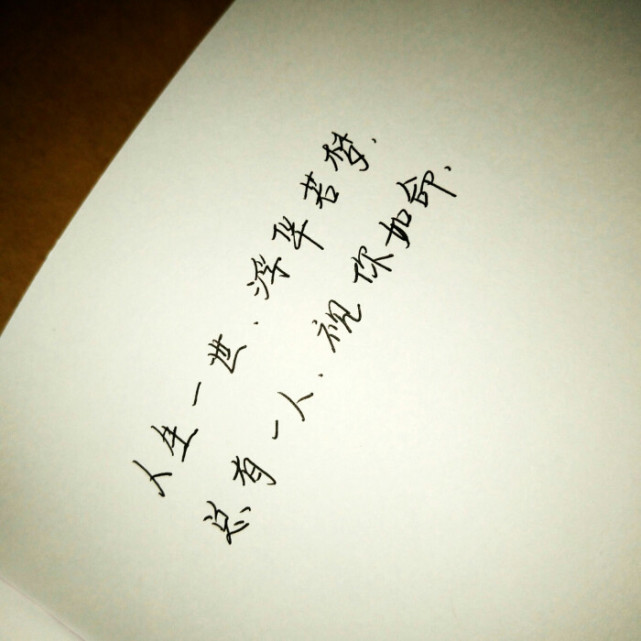 人生一世、浮华若梦.
总有一人、视你如命、